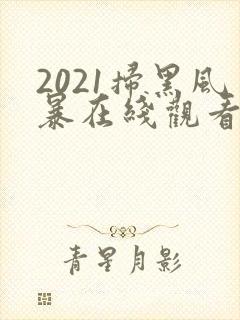 2021掃黑风
暴在綫觀看
青星月影